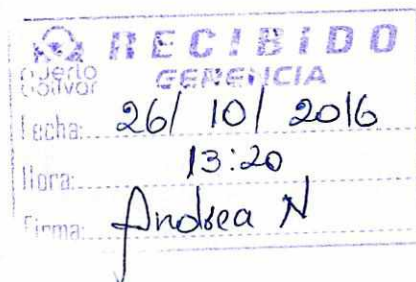 RECIBIDO
Puerto Bolívar
GERENCIA
Fecha: 26/ 10/ 2016
Hora: 13:20
Firma: Andrea N